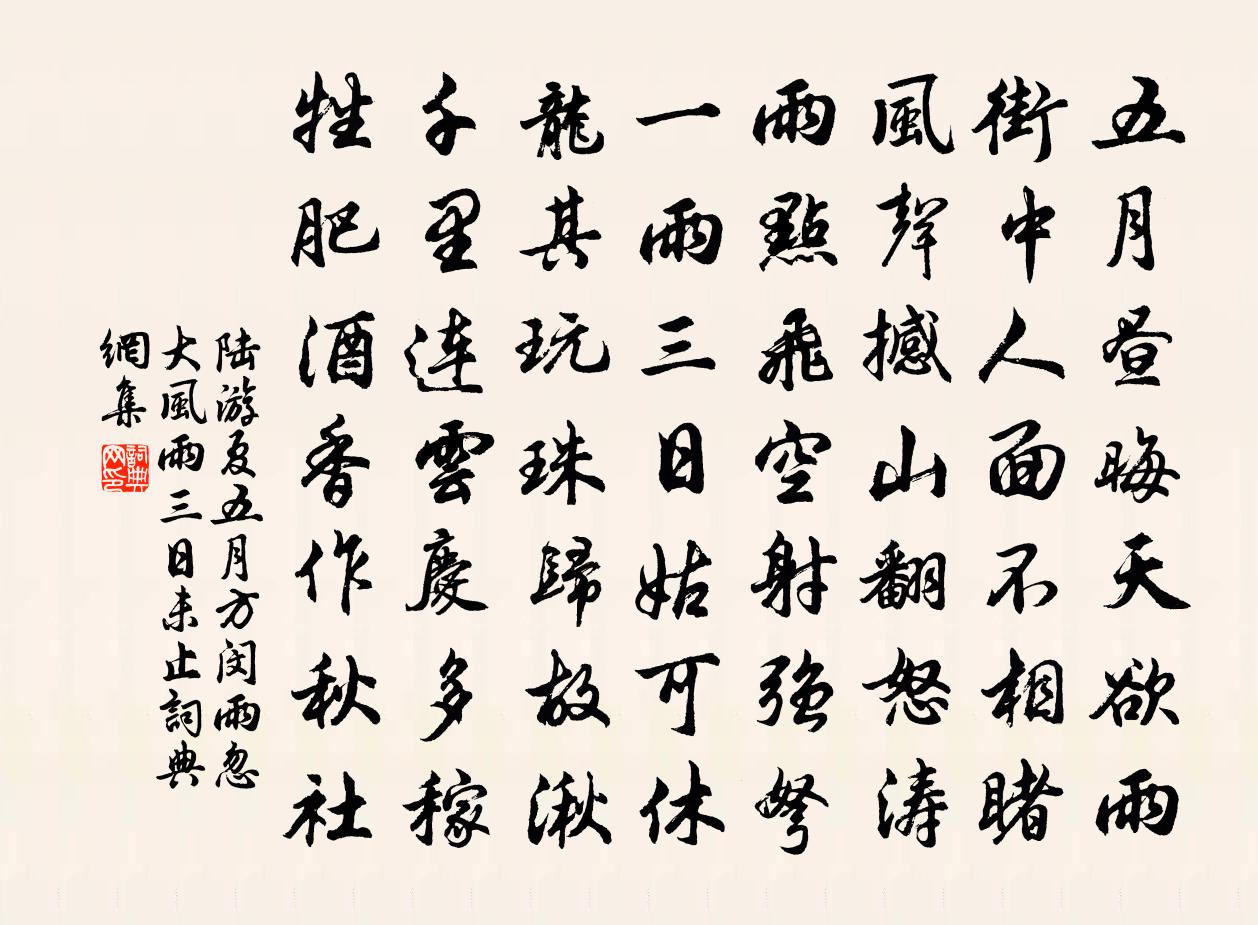 五月昼晦天欲雨
街中人面不相睹
風聲撼山翻怒涛
雨點飛空射强弩
一雨三日姑可休
龍其玩珠歸故湫
千里連雲慶多稼
牲肥酒香作秋社
陆游夏五月方闵雨忽
大風雨三日未止詞典
網集
詞典
网印